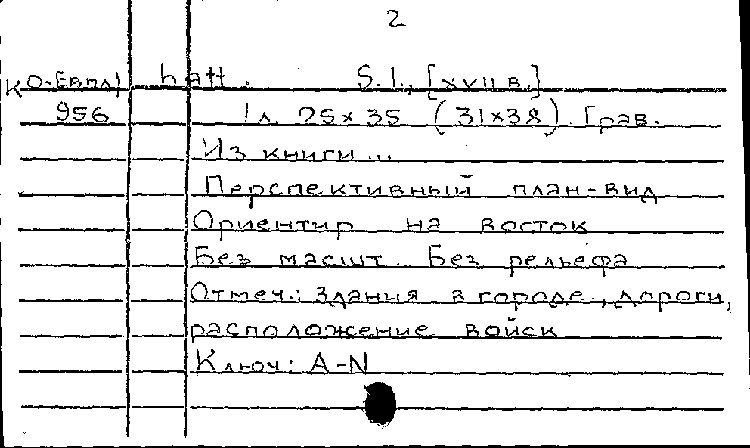 2
К О-Евпл) hatt. S.l., [XVII в.]
956 1 л. 25×35 (31×38). Грав.
Из книги...
Перспективный план-вид
Ориентир на восток
Без масшт. Без рельефа
Отмеч.: Здания в городе, дороги,
расположение войск
Ключ: A-N